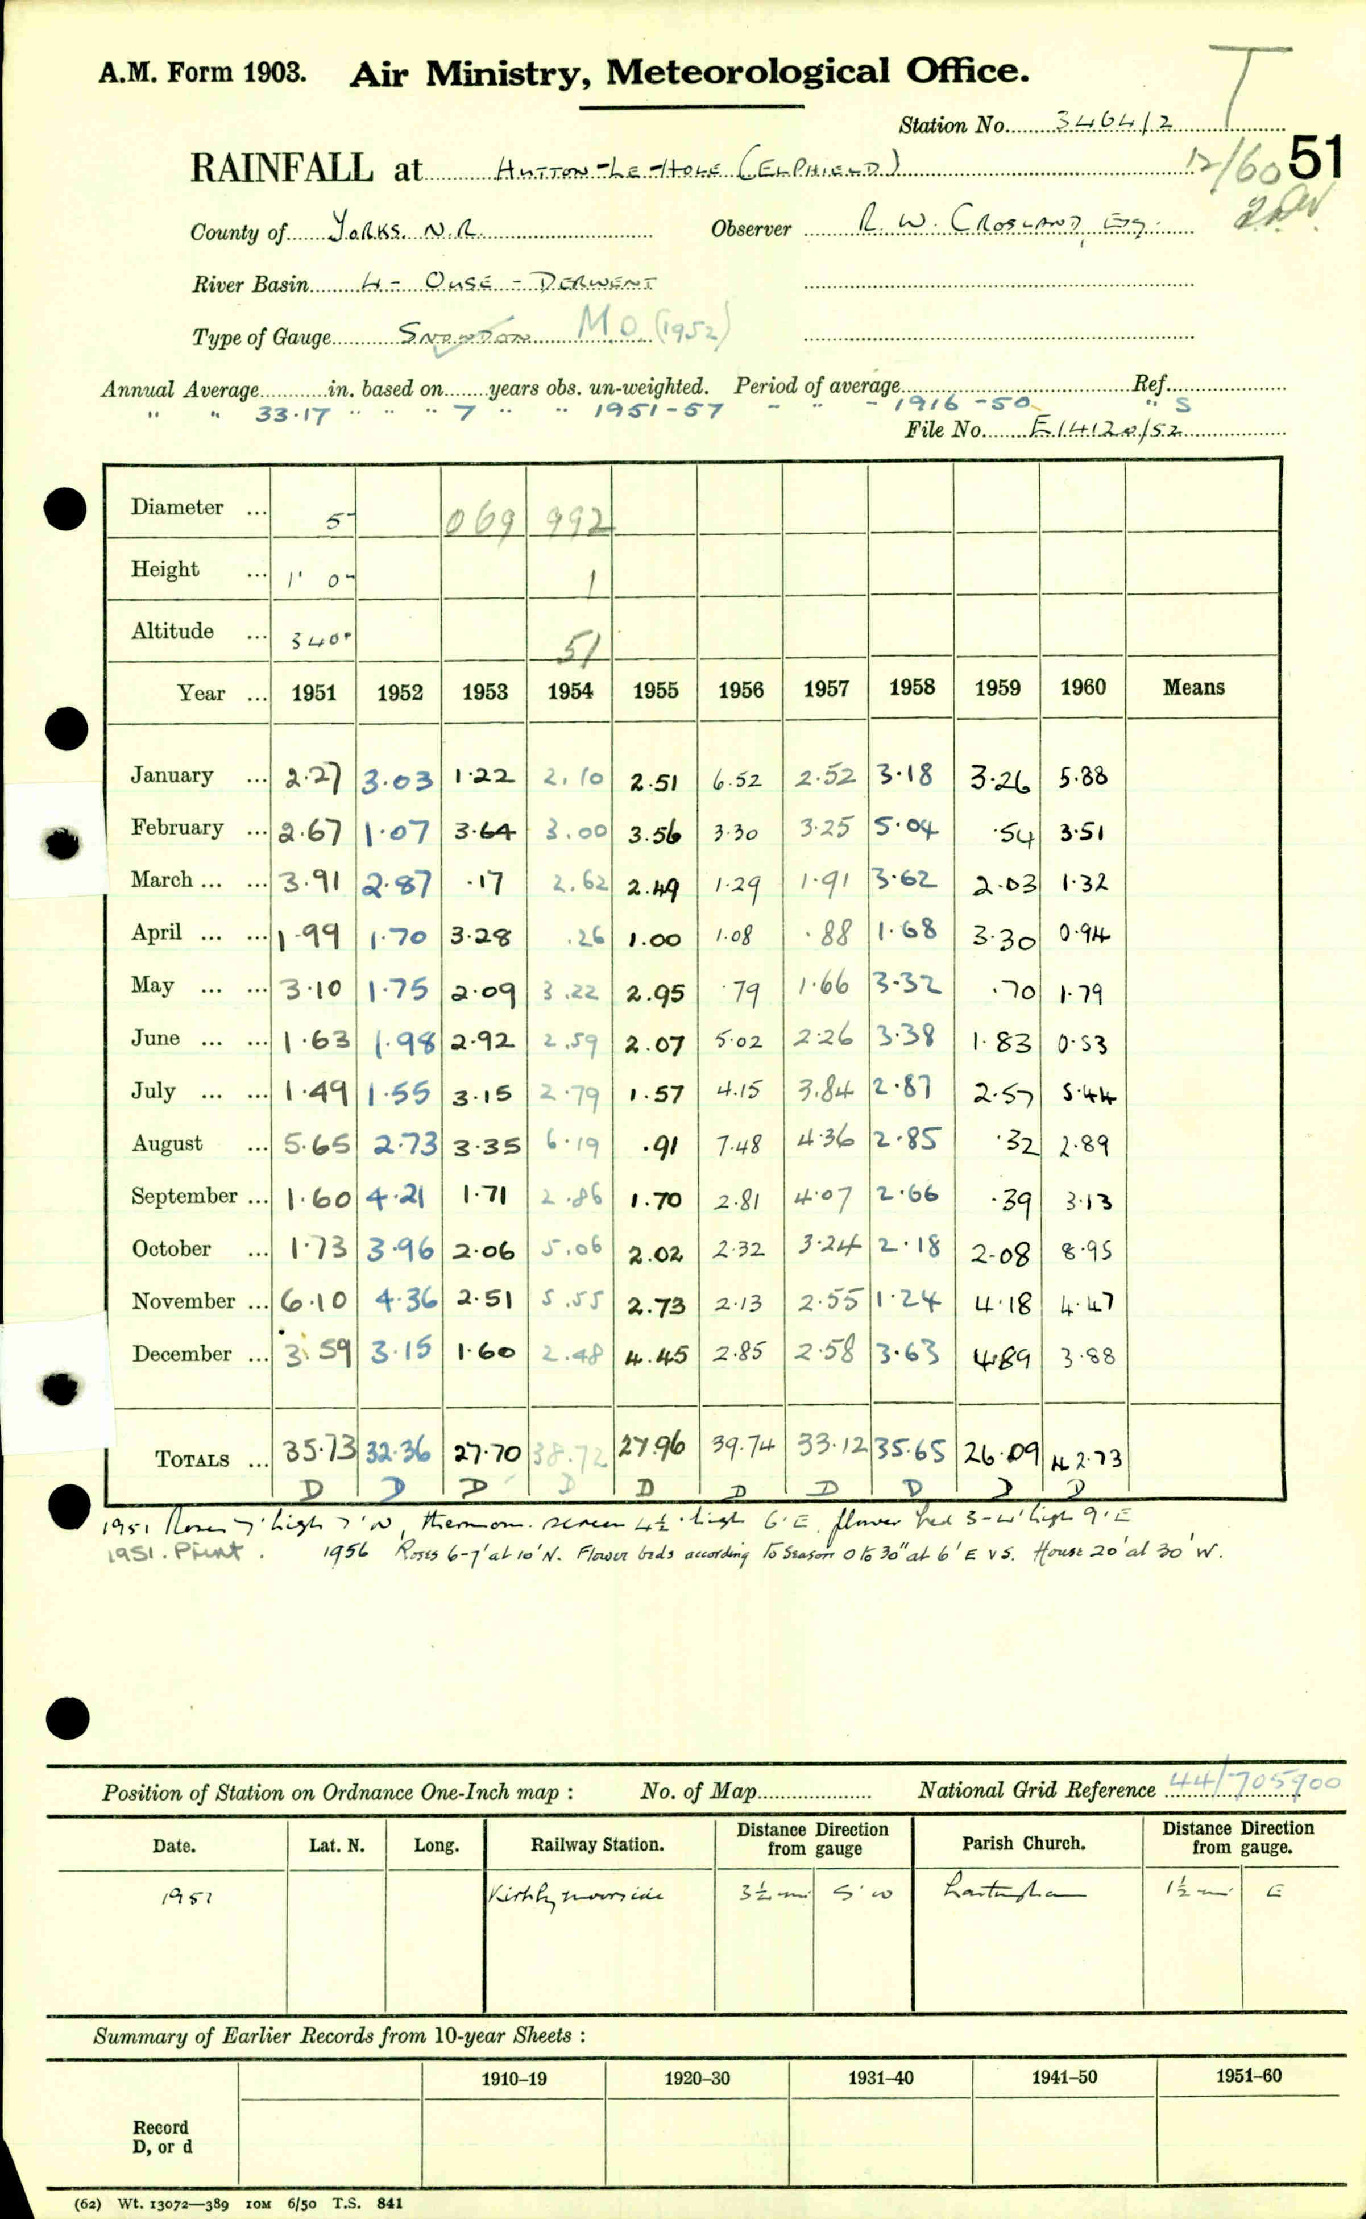 A.M. Form 1903. Air Ministry, Meteorological Office.
T
Station No. 3464/2
RAINFALL at Hutton-Le-Hole (Elphield)
12/60 51
County of Yorks. N.R. Observer R. W. Crosland, Esq.
River Basin 4 - Ouse - Derwent
Type of Gauge Snowdon M.O. (1952)
Annual Average in. based on years obs. un-weighted. Period of average Ref.
" " 33.17 " " " 7 " " 1951-57 - " - 1916-50 " S
File No. E/4120/52
Diameter ... 5" 069 992
Height ... 1' 0" 1
Altitude ... 340' 51
Year ... 1951 1952 1953 1954 1955 1956 1957 1958 1959 1960 Means
January ... 2.27 3.03 1.22 2.10 2.51 6.52 2.52 3.18 3.26 5.88
February ... 2.67 1.07 3.64 3.00 3.56 3.30 3.25 5.04 .54 3.51
March ... ... 3.91 2.87 .17 2.62 2.49 1.29 1.91 3.62 2.03 1.32
April ... ... 1.99 1.70 3.28 .26 1.00 1.08 .88 1.68 3.30 0.94
May ... ... 3.10 1.75 2.09 3.22 2.95 .79 1.66 3.32 .70 1.79
June ... ... 1.63 1.98 2.92 2.59 2.07 5.02 2.26 3.38 1.83 0.53
July ... ... 1.49 1.55 3.15 2.79 1.57 4.15 3.84 2.87 2.57 5.44
August ... 5.65 2.73 3.35 6.19 .91 7.48 4.36 2.85 .32 2.89
September ... 1.60 4.21 1.71 2.86 1.70 2.81 4.07 2.66 .39 3.13
October ... 1.73 3.96 2.06 5.06 2.02 2.32 3.24 2.18 2.08 8.95
November ... 6.10 4.36 2.51 5.55 2.73 2.13 2.55 1.24 4.18 4.47
December ... 3.59 3.15 1.60 2.48 4.45 2.85 2.58 3.63 4.89 3.88
Totals ... 35.73 32.36 27.70 38.72 27.96 39.74 33.12 35.65 26.09 42.73
D D D D D D D D D D
1951 Roses 7' high 7' N, thermom. screen 4½' high 6' E, flower bed 3-4' high 9' E
1951. Print. 1956 Roses 6-7' at 10' N. Flower beds according to Season 0 to 30" at 6' E & S. House 20' at 30' W.
Position of Station on Ordnance One-Inch map : No. of Map National Grid Reference 44/705900
Date. Lat. N. Long. Railway Station. Distance from gauge Direction Parish Church. Distance from gauge. Direction
1951 Kirkbymoorside 3½ mi S'W Lastingham 1½ mi E
Summary of Earlier Records from 10-year Sheets :
1910–19 1920–30 1931–40 1941–50 1951–60
Record
D, or d
(62) Wt. 13072—389 10M 6/50 T.S. 841